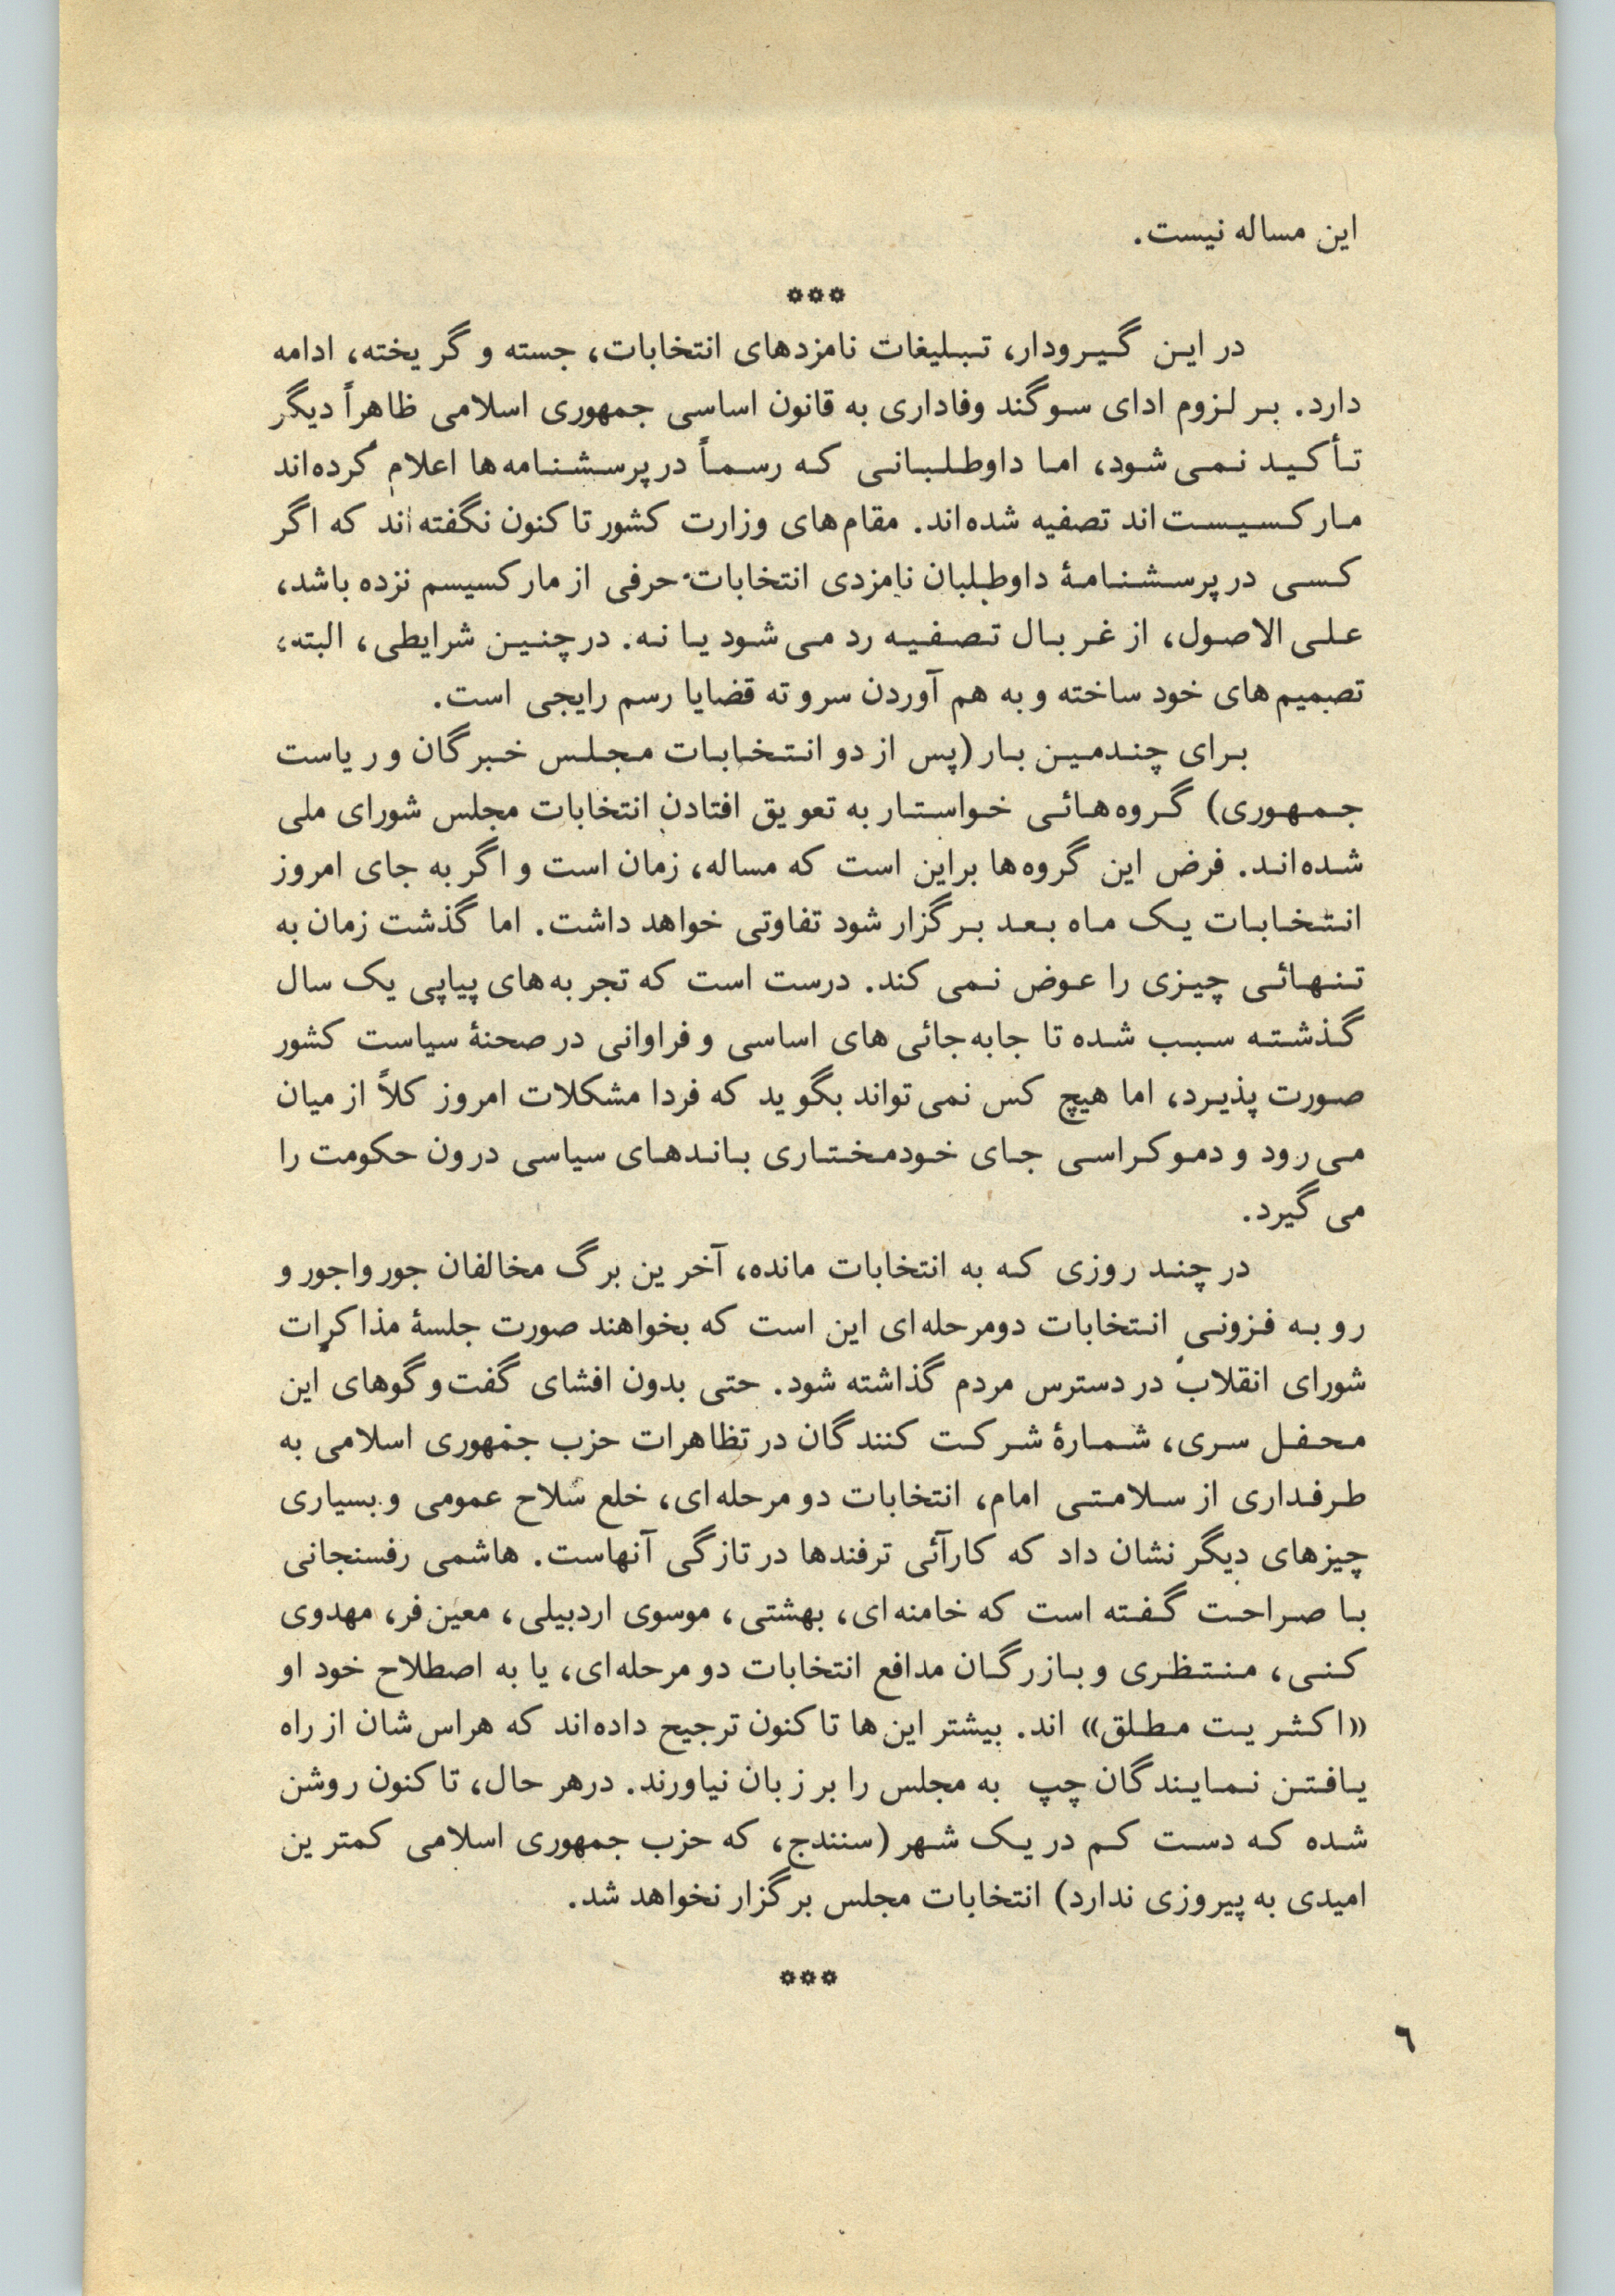 این مساله نیست.
***
در این گیرودار، تبلیغات نامزدهای انتخابات، جسته و گریخته، ادامه
دارد. بر لزوم ادای سوگند وفاداری به قانون اساسی جمهوری اسلامی ظاهراً دیگر
تأکید نمی‌شود، اما داوطلبانی که رسماً در پرسشنامه‌ها اعلام کرده‌اند
مارکسیست‌اند تصفیه شده‌اند. مقام‌های وزارت کشور تاکنون نگفته‌اند که اگر
کسی در پرسشنامهٔ داوطلبان نامزدی انتخابات حرفی از مارکسیسم نزده باشد،
علی الاصول، از غربال تصفیه رد می‌شود یا نه. در چنین شرایطی، البته،
تصمیم‌های خود ساخته و به هم آوردن سر و ته قضایا رسم رایجی است.
برای چندمین بار (پس از دو انتخابات مجلس خبرگان و ریاست
جمهوری) گروه‌هائی خواستار به تعویق افتادن انتخابات مجلس شورای ملی
شده‌اند. فرض این گروه‌ها براین است که مساله، زمان است و اگر به جای امروز
انتخابات یک ماه بعد برگزار شود تفاوتی خواهد داشت. اما گذشت زمان به
تنهائی چیزی را عوض نمی‌کند. درست است که تجربه‌های پیاپی یک سال
گذشته سبب شده تا جابه‌جائی‌های اساسی و فراوانی در صحنهٔ سیاست کشور
صورت پذیرد، اما هیچ کس نمی‌تواند بگوید که فردا مشکلات امروز کلاً از میان
می‌رود و دموکراسی جای خودمختاری باندهای سیاسی درون حکومت را
می‌گیرد.
در چند روزی که به انتخابات مانده، آخرین برگ مخالفان جورواجور و
رو به فزونی انتخابات دومرحله‌ای این است که بخواهند صورت جلسهٔ مذاکرات
شورای انقلاب در دسترس مردم گذاشته شود. حتی بدون افشای گفت‌وگوهای این
محفل سری، شمارهٔ شرکت کنندگان در تظاهرات حزب جمهوری اسلامی به
طرفداری از سلامتی امام، انتخابات دو مرحله‌ای، خلع سلاح عمومی و بسیاری
چیزهای دیگر نشان داد که کارآئی ترفندها در تازگی آنهاست. هاشمی رفسنجانی
با صراحت گفته است که خامنه‌ای، بهشتی، موسوی اردبیلی، معین‌فر، مهدوی
کنی، منتظری و بازرگان مدافع انتخابات دو مرحله‌ای، یا به اصطلاح خود او
«اکثریت مطلق» اند. بیشتر این‌ها تاکنون ترجیح داده‌اند که هراس‌شان از راه
یافتن نمایندگان چپ به مجلس را بر زبان نیاورند. درهر حال، تاکنون روشن
شده که دست کم در یک شهر (سنندج، که حزب جمهوری اسلامی کمترین
امیدی به پیروزی ندارد) انتخابات مجلس برگزار نخواهد شد.
***
٦